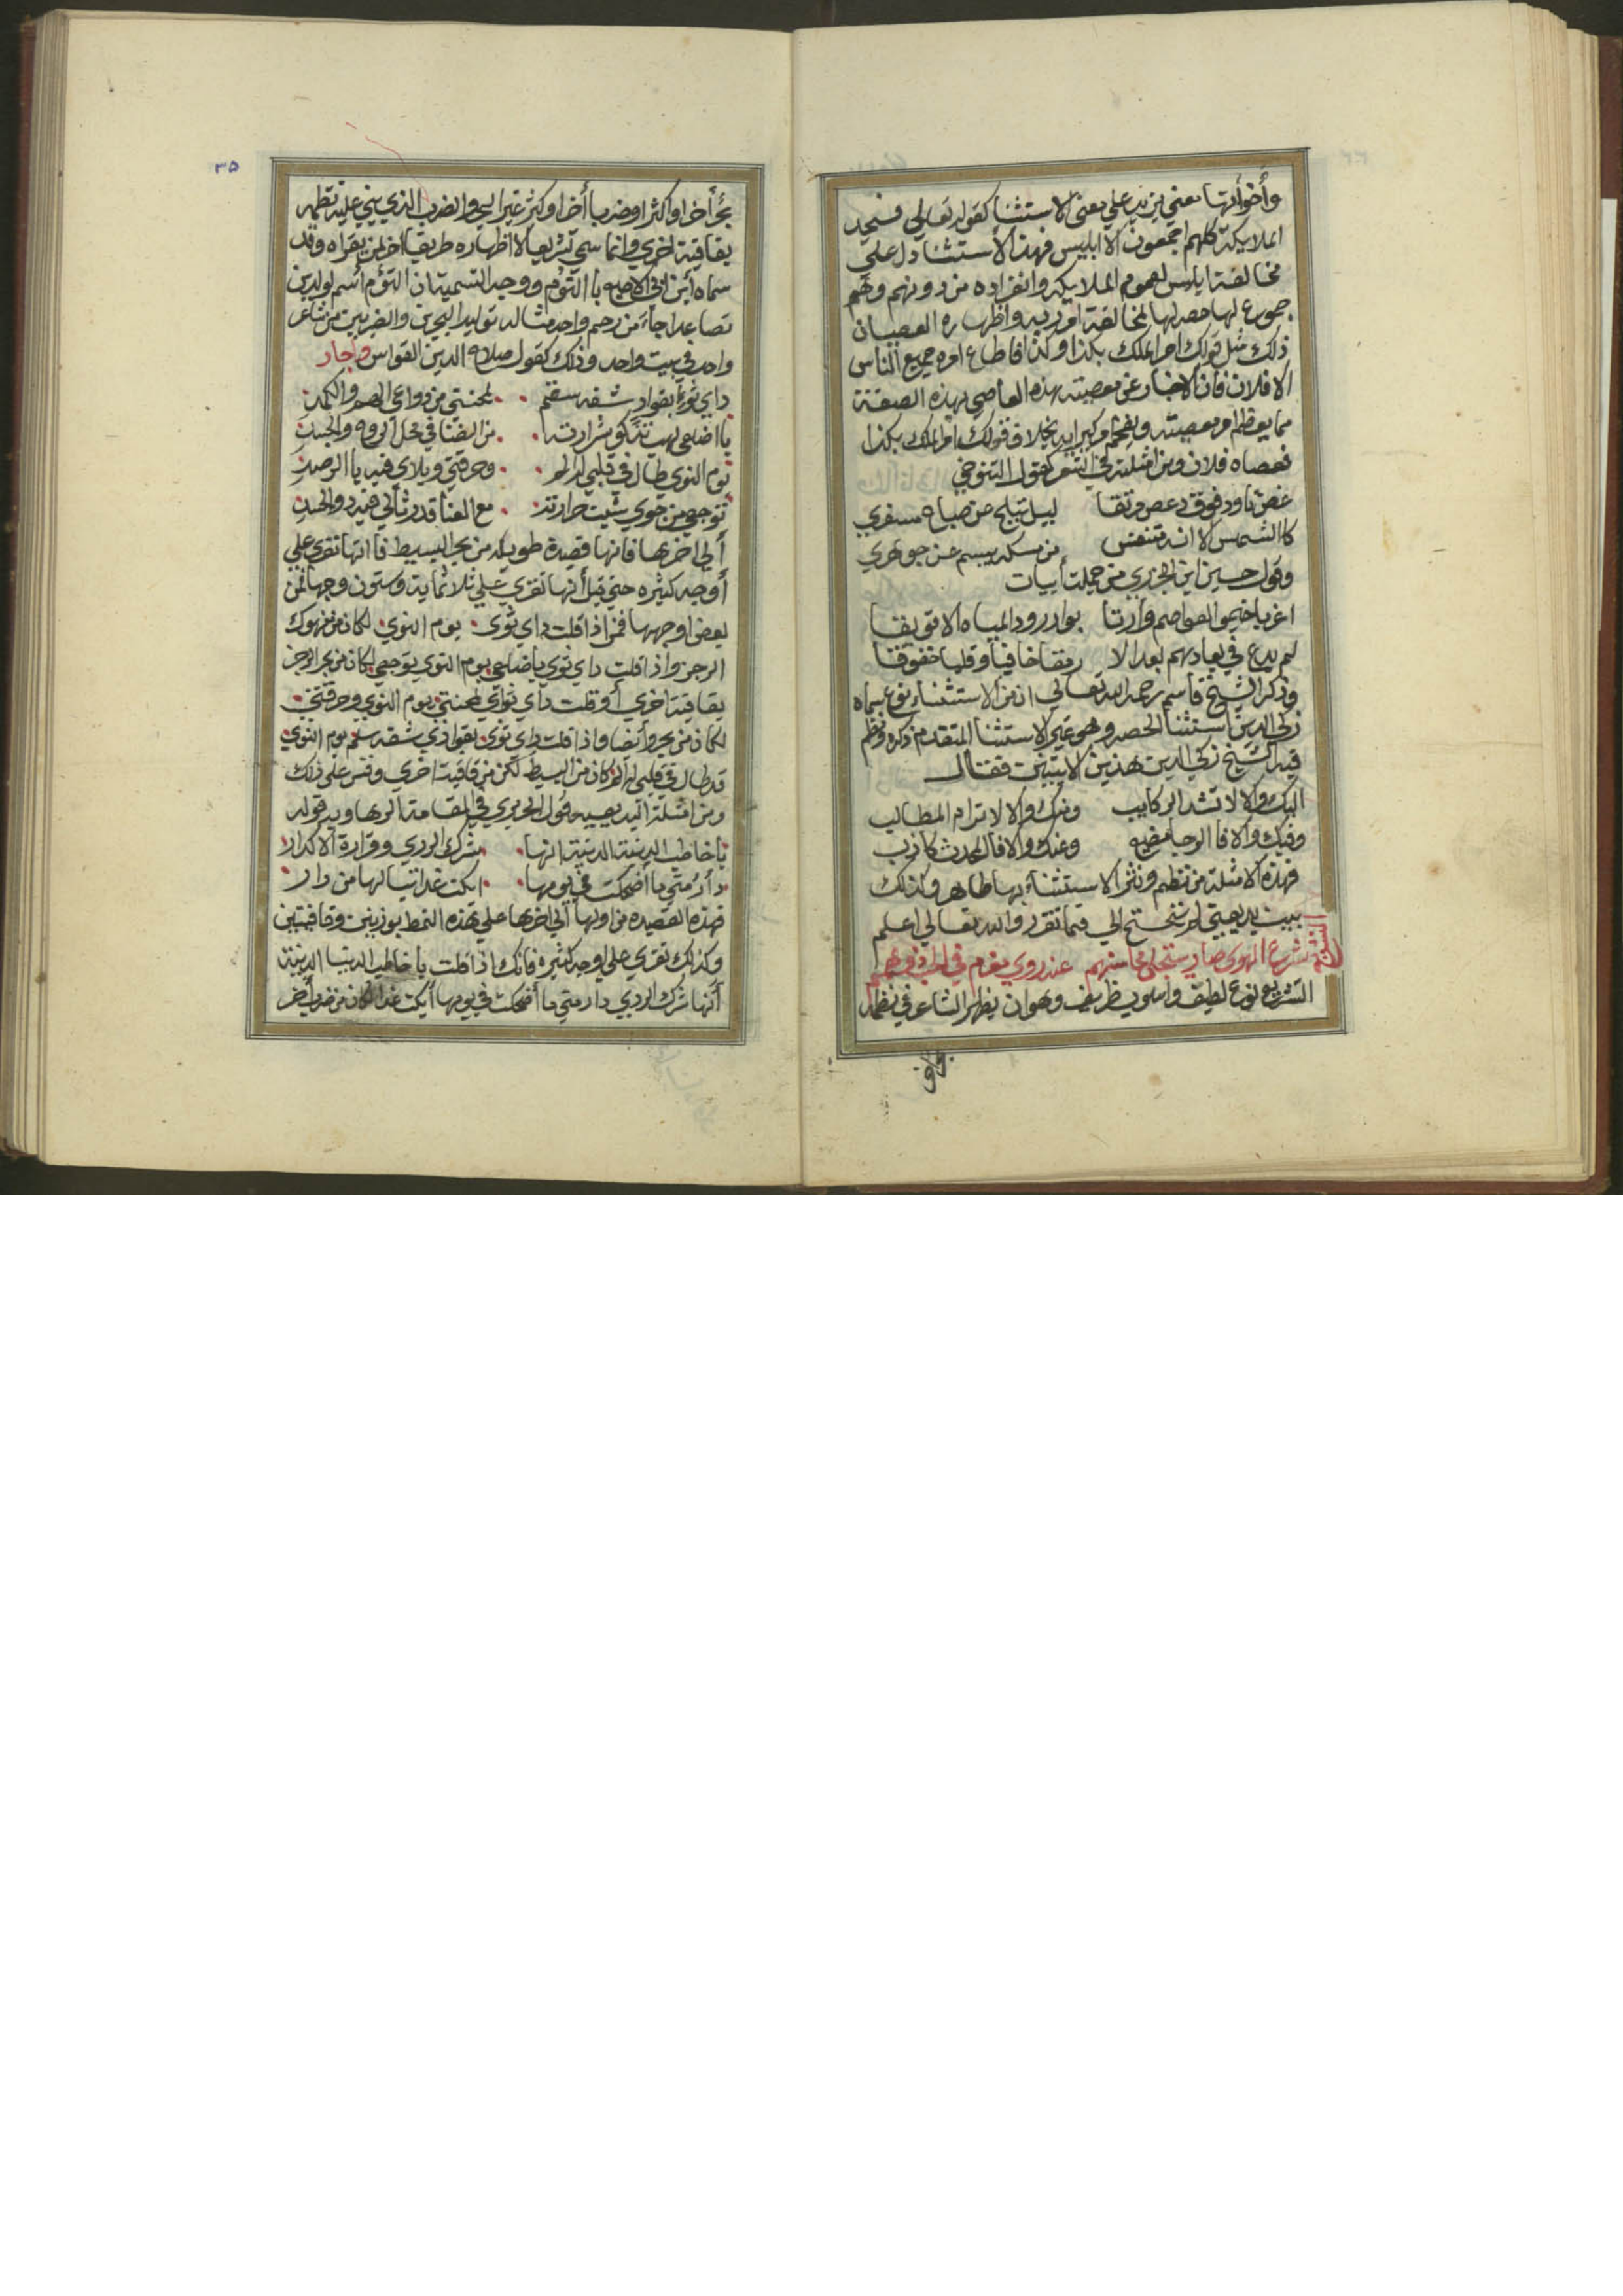 وأخواتها معني يزيد علي معني الاستثنا كقوله تعالي فسجد
الملايكة كلهم اجمعون الا ابليس فهذا الاستثنا دل علي
مخالفة ابليس لعموم الملايكه وانفراده من دونهم وهم
جموع لها حصر لها لمخالفة امر ربه واظهاره العصيان
ذلك مثل قولك امر الملك بكذا وكذا فاطاع امره جميع الناس
الا فلان فان الاخبار عن معصيته هذه العاصي بهذه الصفة
مما يعظم امر معصيته ويفخم امر كبرايه بخلاف قولك امر الملك بكذا
فعصاه فلان ومن امثلته في الشعر كقول التنوخي
غصن تاود فوق دعص نقا ليل تبلج عن صباح مسفري
كاالشمس الا انه متنفس من مسكه يبسم عن جوهري
وقول حسين ابن الجزري من جملة أبيات
بوادر ورد المياه الا تو يقا
لم يدع في بعادهم بعد الا رمقا خافيا وقلبا خفوقا
وذكر الشيخ قاسم رحمه الله تعالي ان من الاستثناء نوع سماه
زكي الدين استثنا الحصر وهو غير الاستثنا المتقدم ذكره ونظم
فيه الشيخ زكي الدين هذين الابيتين فقال
اليك والا لا تشد الركايب ومنك والا لا ترام المطالب
وفيك والا فا الرجا مضيع وعنك والا فالمحدث كاذب
فهذه الامثلة من نظم ونثر الاستثناء بها ظاهر وكذلك
بيت بديعيتي لم تحتج الي فيما تقرر والله تعالي اعلم
تشرع الهوي صار ستجلي محاسنهم عند روي مغرم في الحب
التشريع نوع لطيف واسلوب ظريف وهو ان يظهر الشاعر في نظمه
٣٥
بحرأ أخر او اكثر او ضربا أخر او اكثر غير البحر والضرب الذي بني عليه نظمه
بقافية اخري وانما سمي تشريعا لاظهاره طريقا اخر لمن يقراه وقد
سماه أبن ابي الاصبع باالتؤم ووجه التسمية ان التؤم أسم لولدين
تصاعدا جاء من رحم واحد مثاله توليد البحرين والضربين من شاعر
واحد في بيت واحد وذلك كقول صلاح الدين القواس واجار
داي ثوي بفواد شفه سقم لمحنتي من دواعي الهم والكمد
بااضلعي لهب تذكو شرارته من الضنا في محل الروح والجسد
يوم النوي طال في قلبي له الم وحرقتي وبلاي فيه باالرصد
توجعي من جوي شبت حرارته مع العنا قد رثا لي فيه ذو الحسد
ألي اخرها فانها قصيدة طويله من بحر البسيط فاانها تقري علي
أوجه كثيره حتي قيل أنها تقري علي ثلاثماية وستون وجها فمن
بعض اوجهها فمن اذا قلت داي ثوى يوم النوي لكان من منهوك
الرجز واذا قلت داي ثوى باضلعي يوم النوي توجعي لكان من بحر الرجز
بقافية اخري أو قلت داي ثواي لمحنتي يوم النوي وحرقتي
لكان من بحر وأيضا واذا قلت داي ثوى بفوادي شفه سقم يوم النوي
قد طال في قلبي له الم كان من البسيط لكن من قافية اخري وقس علي ذلك
ومن امثلته البديعيه قول الحريري في المقامة الرهاويه قوله
ياخاطب الدنية الدنية انها شرك الردي وقرارة الاكدار
دأر متي ماأضحكت في يومها ابكت غدا تبا لها من دار
فهذه القصيده من اولها ألي اخرها علي هذه النمط بوزنين وقافيتين
وكذلك تقري علي اوجه كثيره فانك اذا قلت ياخاطب الدنيا الدنية
أنها شرك الردي دار متي ماأضحكت في يومها أبكت غدا لكان من ضرب أخر